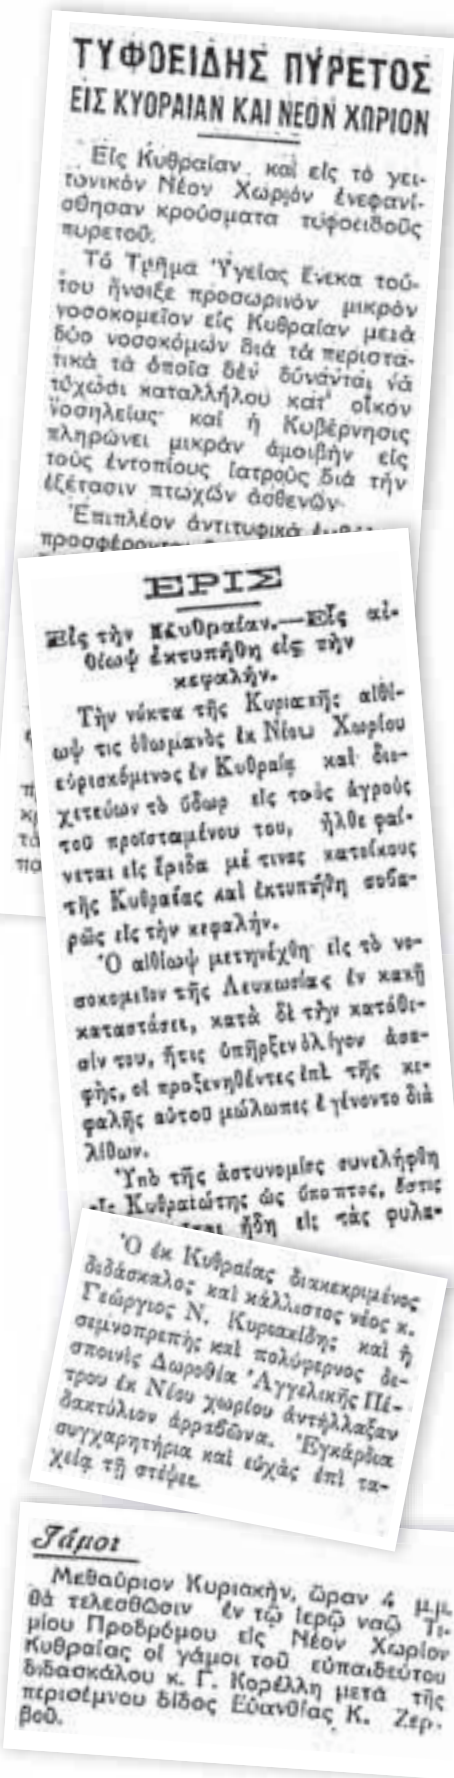 ΤΥΦΟΕΙΔΗΣ ΠΥΡΕΤΟΣ
ΕΙΣ ΚΥΘΡΑΙΑΝ ΚΑΙ ΝΕΟΝ ΧΩΡΙΟΝ
Εἰς Κυθραίαν καὶ εἰς τὸ γει-
τονικὸν Νέον Χωρίον ἐνεφανί-
σθησαν κρούσματα τυφοειδοῦς
πυρετοῦ.
Τὸ Τμῆμα Ὑγείας ἕνεκα τού-
του ἤνοιξε προσωρινὸν μικρὸν
νοσοκομεῖον εἰς Κυθραίαν μετὰ
δύο νοσοκόμων διὰ τὰ περιστα-
τικὰ τὰ ὁποῖα δὲν δύνανται νὰ
τύχωσι καταλλήλου κατ' οἶκον
νοσηλείας καὶ ἡ Κυβέρνησις
πληρώνει μικρὰν ἀμοιβὴν εἰς
τοὺς ἐντοπίους ἰατροὺς διὰ τὴν
ἐξέτασιν πτωχῶν ἀσθενῶν.
Ἐπιπλέον ἀντιτυφικὰ
ΕΡΙΣ
Εἰς τὴν Κυθραίαν.—Εἷς αἰ-
θίωψ ἐκτυπήθη εἰς τὴν
κεφαλήν.
Τὴν νύκτα τῆς Κυριακῆς αἰθί-
ωψ τις ὀθωμανὸς ἐκ Νέου Χωρίου
εὑρισκόμενος ἐν Κυθραίᾳ καὶ διο-
χετεύων τὸ ὕδωρ εἰς τοὺς ἀγροὺς
τοῦ προϊσταμένου του, ἦλθε φαί-
νεται εἰς ἔριδα μέ τινας κατοίκους
τῆς Κυθραίας καὶ ἐκτυπήθη σοβα-
ρῶς εἰς τὴν κεφαλήν.
Ὁ αἰθίωψ μετηνέχθη εἰς τὸ νο-
σοκομεῖον τῆς Λευκωσίας ἐν κακῇ
καταστάσει, κατὰ δὲ τὴν κατάθε-
σίν του, ἥτις ὑπῆρξεν ὀλίγον ἀσα-
φής, οἱ προξενηθέντες ἐπὶ τῆς κε-
φαλῆς αὐτοῦ μώλωπες ἐγένοντο διὰ
λίθων.
Ὑπὸ τῆς ἀστυνομίας συνελήφθη
εἷς Κυθραιώτης ὡς ὕποπτος, ὅστις
ἤδη εἰς τὰς φυλα-
Ὁ ἐκ Κυθραίας διακεκριμένος
διδάσκαλος καὶ κάλλιστος νέος κ.
Γεώργιος Ν. Κυριακίδης καὶ ἡ
σεμνοπρεπὴς καὶ πολύφερνος δε-
σποινὶς Δωροθέα Ἀγγελικῆς Πέ-
τρου ἐκ Νέου χωρίου ἀντήλλαξαν
δακτύλιον ἀρραβῶνα. Ἐγκάρδια
συγχαρητήρια καὶ εὐχὰς ἐπὶ τα-
χείᾳ τῇ στέψει.
Γάμοι
Μεθαύριον Κυριακὴν, ὥραν 4 μ.μ.
θὰ τελεσθῶσιν ἐν τῷ ἱερῷ ναῷ Τι-
μίου Προδρόμου εἰς Νέον Χωρίον
Κυθραίας οἱ γάμοι τοῦ εὐπαιδεύτου
διδασκάλου κ. Γ. Κορέλλη μετὰ τῆς
περισέμνου δίδος Εὐανθίας Κ. Ζερ-
βοῦ.